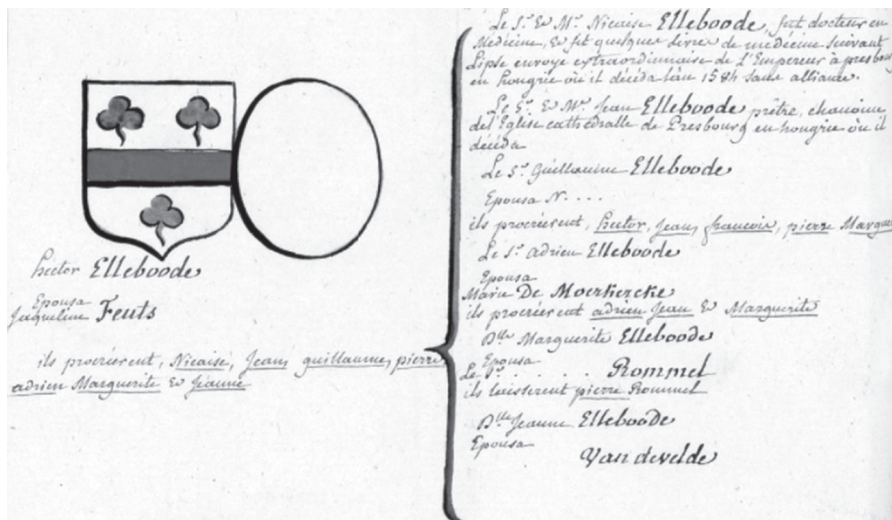 hector Elleboode
Epousa
Jacqueline Feuts
ils procréerent, Nicaise, Jean, guillaume, pierre
adrien Marguerite & Jeanne
Le Sr. & Mr. Nicaise Elleboode, fut docteur en
Medecine, & fit quelques livres de medecine suivant
Lipse envoye extraordinaire de L'Empereur à presbourg
en hongrie où il déceda l'an 1584 sans alliance.
Le Sr. & Mr. Jean Elleboode prêtre, chanoine
de l'Eglise cathédralle de Presbourg en hongrie où il
décéda
Le Sr. Guillaume Elleboode
Epousa N....
ils procréerent, hector, Jean, francois, pierre
Le Sr. adrien Elleboode
Epousa
Marie De Moerkercke
ils procréerent adrien Jean & Marguerite
Dlle Marguerite Elleboode
Epousa
Le Sr. . . . . . . . Rommel
ils laisserent pierre Rommel
Dlle Jeanne Elleboode
Epousa
Van de velde